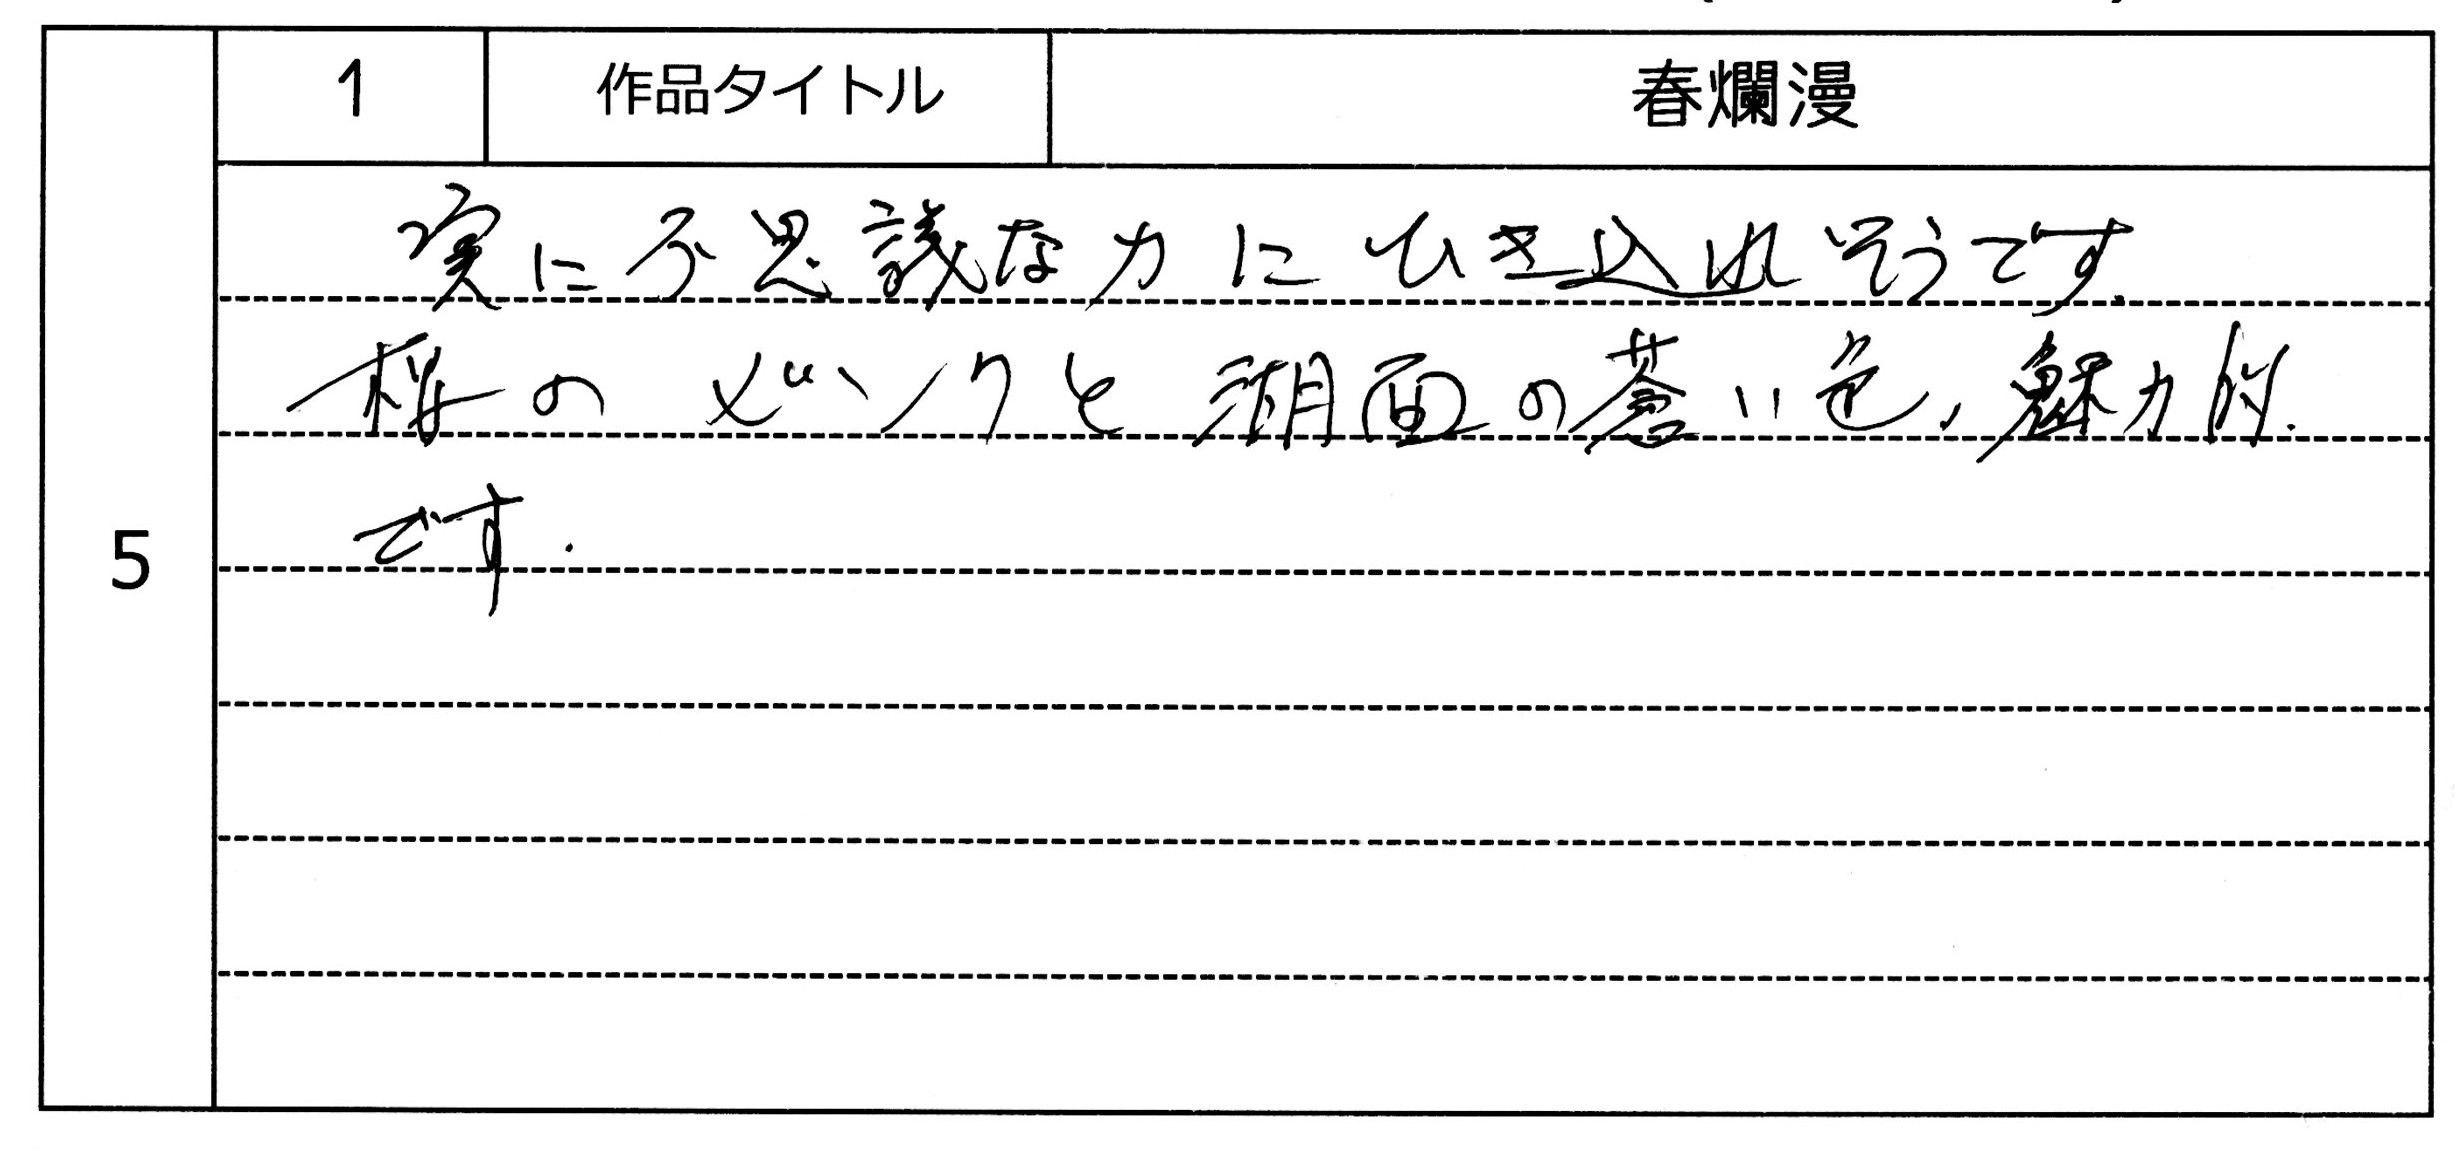 1 作品タイトル 春爛漫
実に不思議な力にひき込れそうです.
桜のピンクと湖面の蒼い色、魅力的.
です.
5